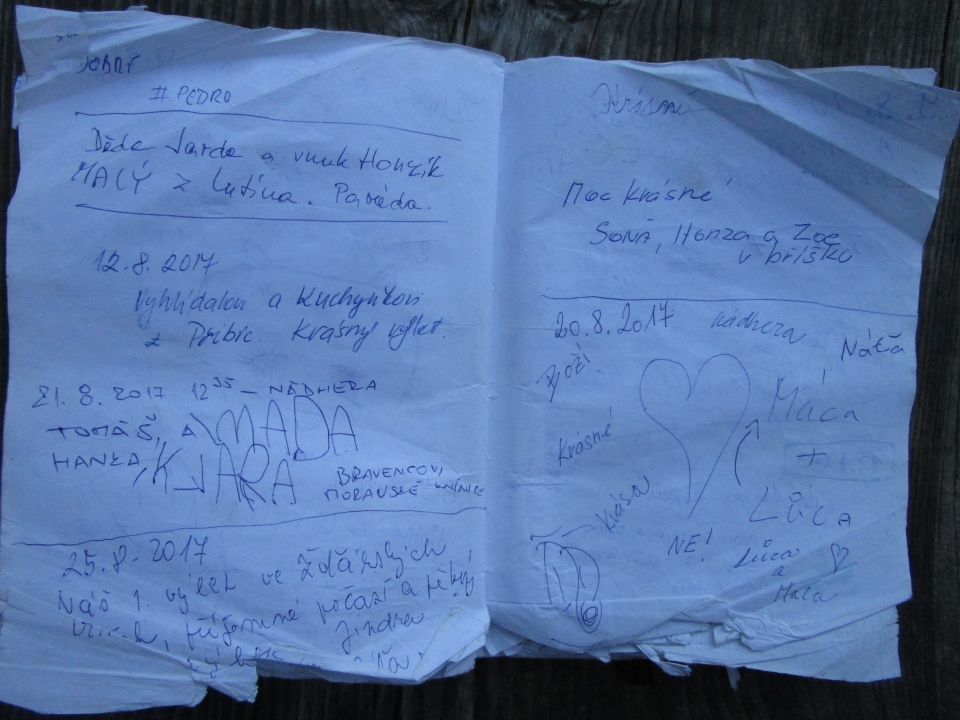 DOBRÝ
# PEDRO
Děda Jarda a vnuk Honzík
MALÝ z Lutína. Paráda.
12.8.2017
Vyhlídalovi a Kuchyňkovi
z Přibic. Krásný výlet.
21.8.2017 12³⁵ – NÁDHERA
TOMÁŠ, A MADA
HANKA, KJARA
BRAVENCOVI,
MORAVSKÉ KNÍNICE
25.8.2017
Náš 1. výlet ve Žďárských
příjemné počasí a pěkný
Jindra
Krásné
Moc krásné
SOŇA, Honza a Zoe
v bříšku
20.8.2017 nádhera
Náťa
Boží!
Máca
Krásné
+
Krása
LůcA
NE!
Lůca
a
Máca